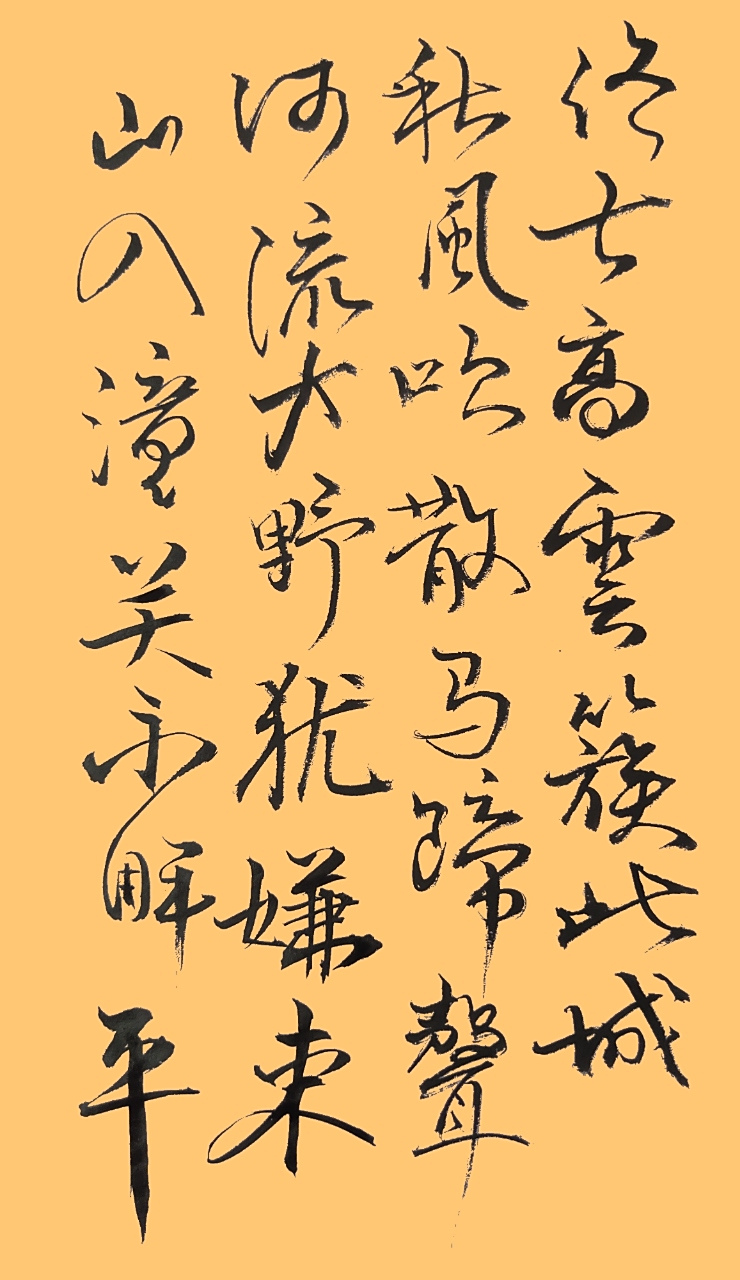 终古高雲簇此城
秋風吹散马蹄聲
河流大野犹嫌束
山入潼关不解平